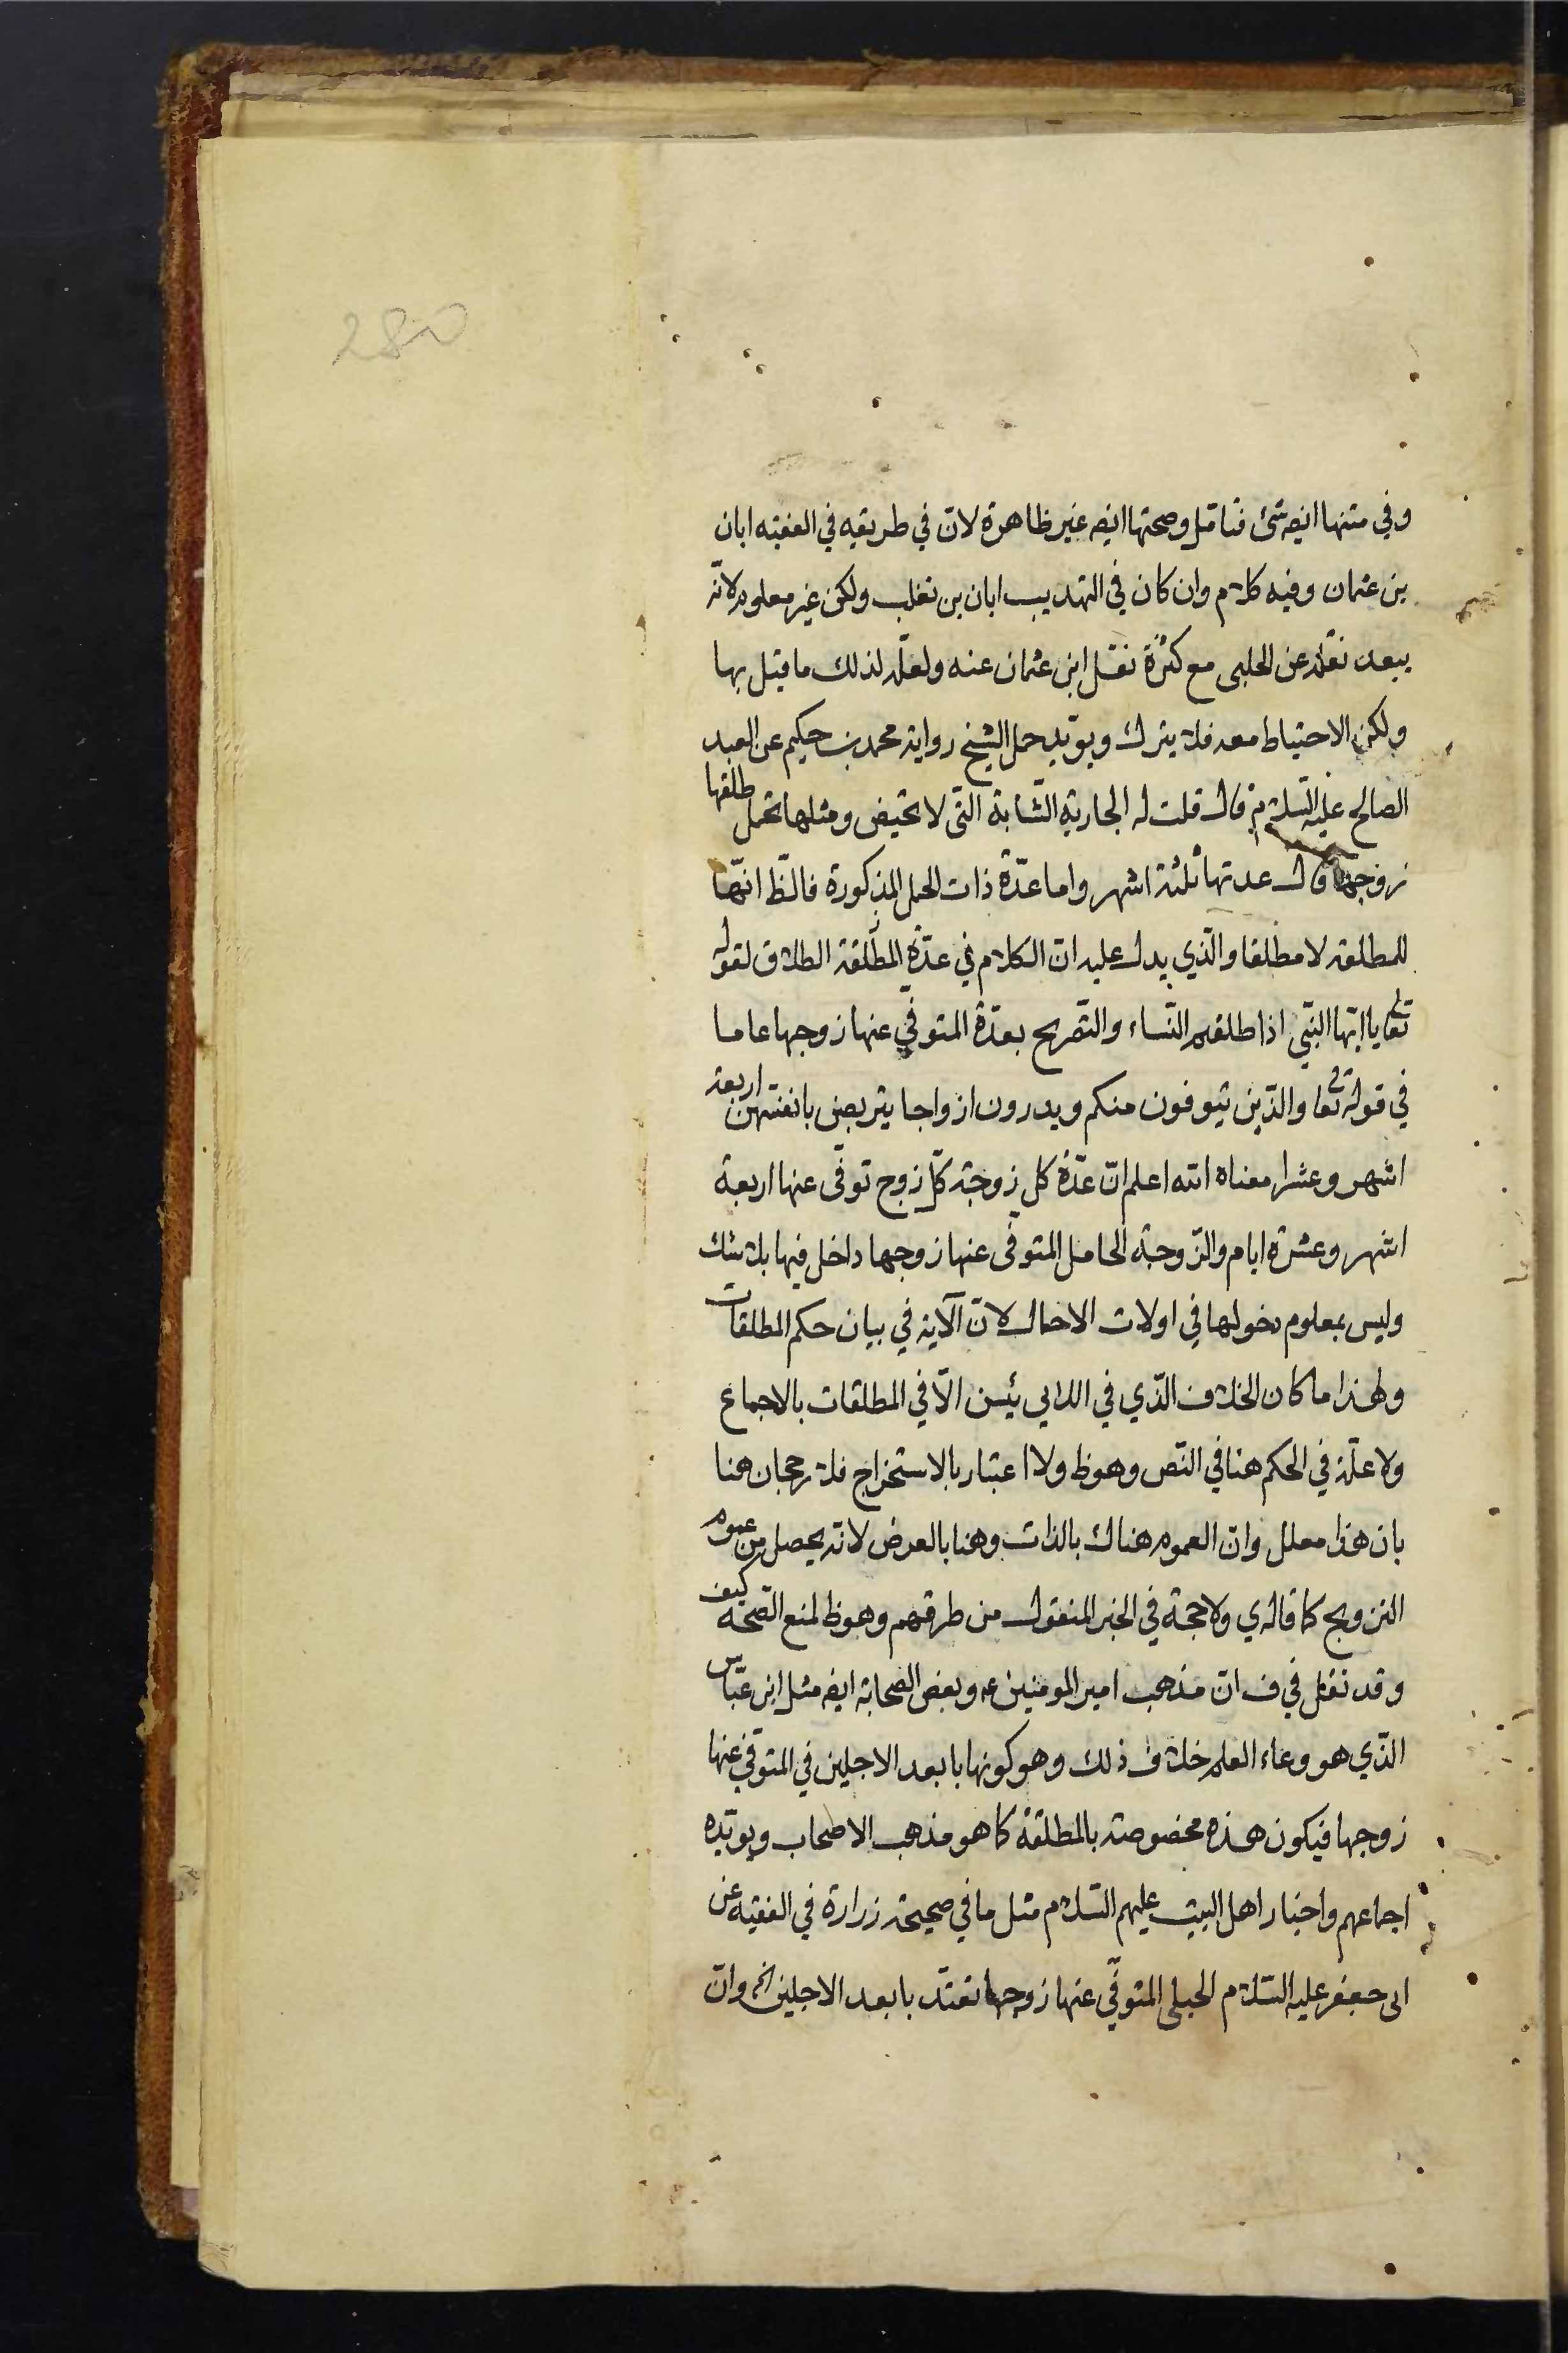 280
وفي متنها ايضه شئ فتامل وصحتها ايضه غير ظاهرة لان في طريقه في الفقيه ابان
بن عثمان وفيه كلام وان كان في التهذيب ابان بن تغلب ولكن غير معلوم لانه
يبعد نقله عن الحلبى مع كثرة نقل ابن عثمان عنه ولعله لذلك ما قيل بها
ولكن الاحتياط معه فلا يترك ويويد حمل الشيخ رواية محمد بن حكيم عن العبد
الصالح عليه السلام قال قلت له الجارية الشابة التى لا تحيض ومثلها تحمل طلقها
زوجها قال عدتها ثلثة اشهر واما عدة ذات الحمل المذكورة فالظ انها
للمطلقه لا مطلقا والذي يدل عليه ان الكلام في عدة المطلقة الطلاق لقوله
تعا يا ايها النبي اذا طلقتم النساء والتصريح بعدة المتوفي عنها زوجها عاما
في قوله تعا والذين يتوفون منكم ويذرون ازواجا يتربصن بانفسهن اربعة
اشهر وعشرا معناه الله اعلم ان عدة كل زوجة كل زوج توفى عنها اربعة
اشهر وعشرة ايام والزوجة الحامل المتوفى عنها زوجها داخل فيها بلا شك
وليس بمعلوم دخولها في اولات الاحمال لان الآية في بيان حكم المطلقات
ولهذا ما كان الخلاف الذي في اللايي يئسن الا في المطلقات بالاجماع
ولا علة في الحكم هنا في النص وهو ظ ولا اعتبار بالاستخراج فلا رجحان هنا
بان هذا معلل وان العموم هناك بالذات وهنا بالعرض لانه يحصل من عموم
التزويج كما قاله ي ولا حجة في الخبر المنقول من طرقهم وهو ظ لمنع الصحة كيف
وقد نقل في ف ان مذهب امير المومنين ع وبعض الصحابة ايضه مثل ابن عباس
الذي هو وعاء العلم خلاف ذلك وهو كونها بابعد الاجلين في المتوفي عنها
زوجها فيكون هذه مخصوصة بالمطلقة كما هو مذهب الاصحاب ويويده
اجماعهم واخبار اهل البيت عليهم السلام مثل ما في صحيحة زرارة في الفقيه عن
ابى جعفر عليه السلام الحبلى المتوفي عنها زوجها تعتد بابعد الاجلين الخ وان